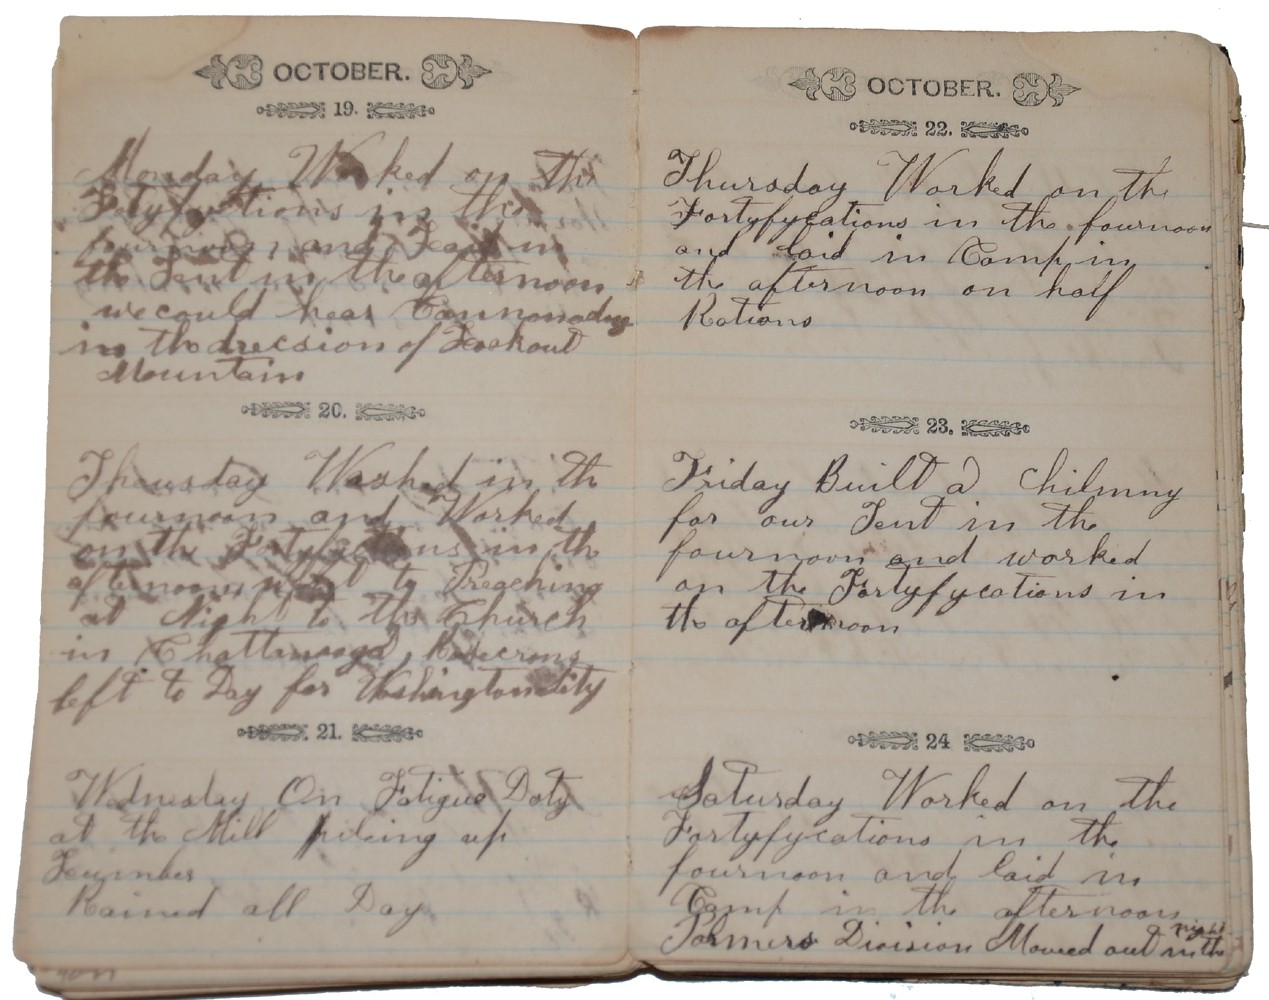 OCTOBER.
19.
Monday Worked on the
Fotyfycations in the
fournoon and Laid in
the Tent in the afternoon
we could hear Cannonading
in the direcsion of Lookout
Mountain
20.
Thousday Washed in th
fournoon and Worked
on the Fortyfycations in the
afternoon to Preaching
at Night to the Church
in Chattanooga, Rosecrans
left to Day for Washington City
21.
Wednesday On Fatigue Doty
at the Mill pileing up
Leumber
Rained all Day
OCTOBER.
22.
Thursday Worked on the
Fortyfycations in the fournoon
and laid in Camp in
the afternoon on half
Rations
23.
Friday Built a Chilmny
for our Tent in the
fournoon and worked
on the Fortyfycations in
the afternoon
24
Saturday Worked on the
Fortyfycations in the
fournoon and laid in
Camp in the afternoon
Palmers Division Moved out in the night